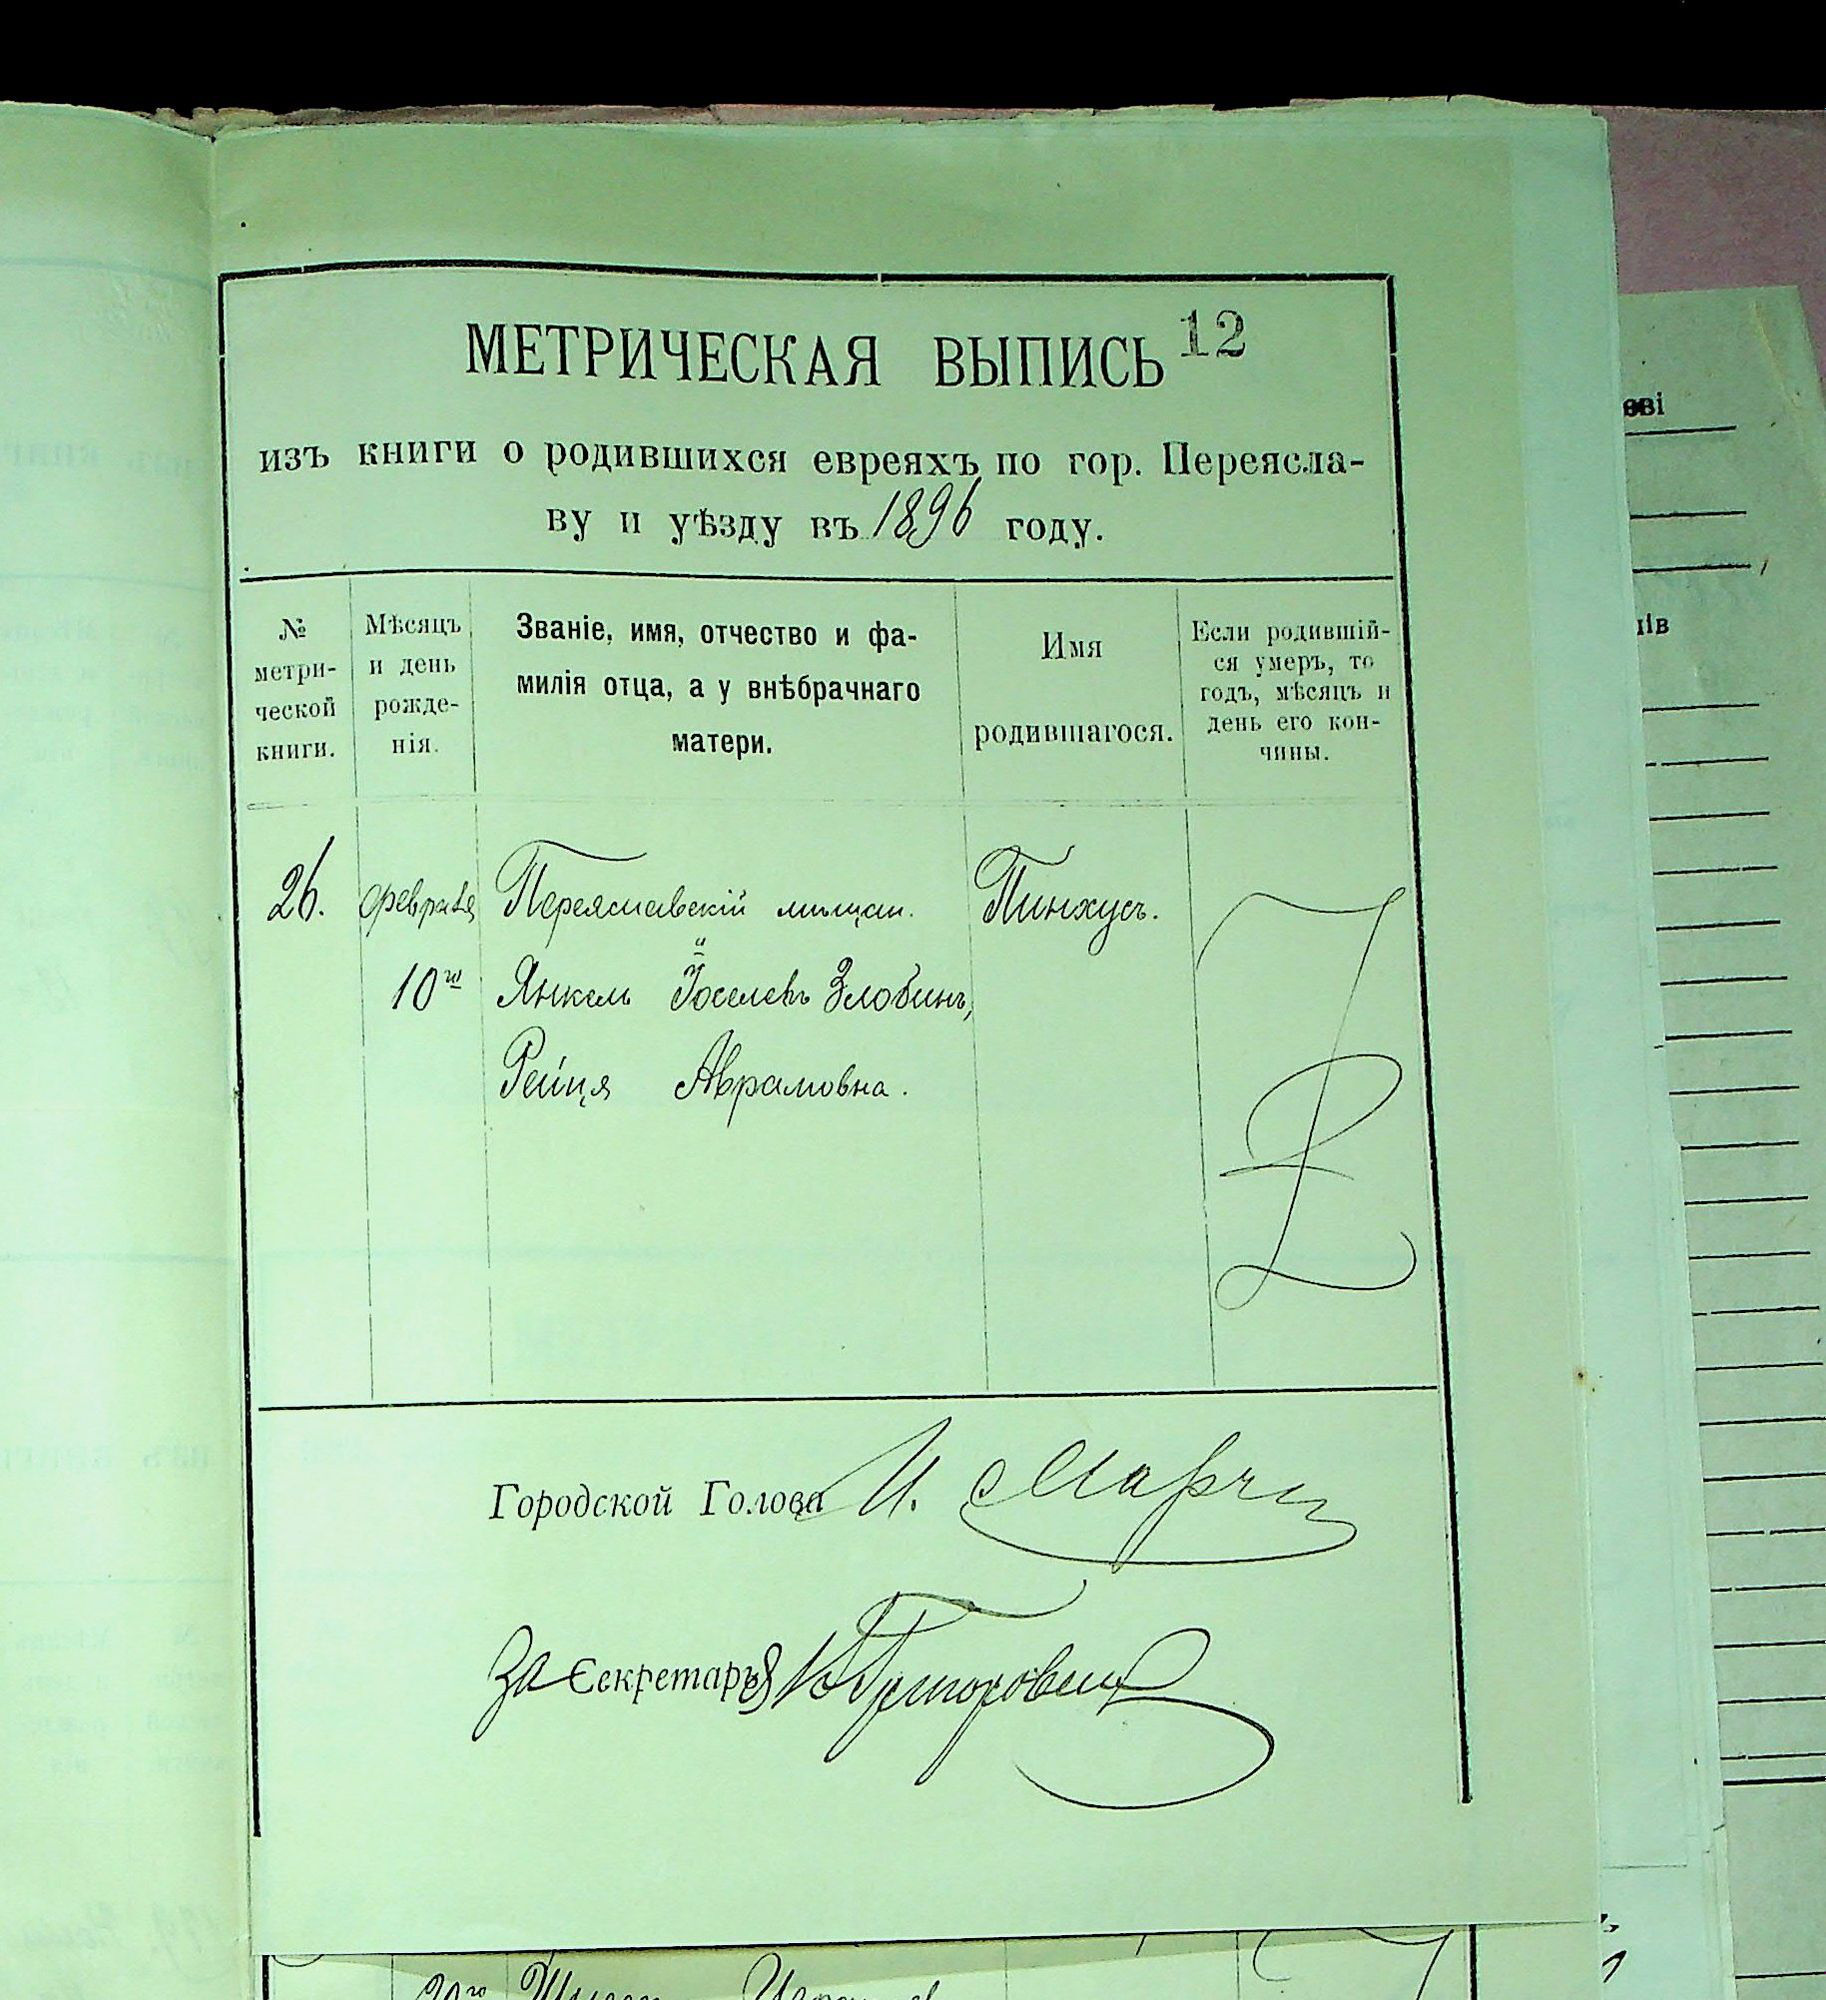 МЕТРИЧЕСКАЯ ВЫПИСЬ 12
изъ книги о родившихся евреяхъ по гор. Переясла-
ву и уѣзду въ 1896 году.
№
метри-
ческой
книги.
Мѣсяцъ
и день
рожде-
нія.
Званіе, имя, отчество и фа-
милія отца, а у внѣбрачнаго
матери.
Имя
родившагося.
Если родившій-
ся умеръ, то
годъ, мѣсяцъ и
день его кон-
чины.
26. февраля Переяславскій мѣщан. Пинхусъ.
10го Янкель Іоселевъ Злобинъ,
Рейця Аврамовна.
Городской Голова И.
За Секретаря
еві
ів